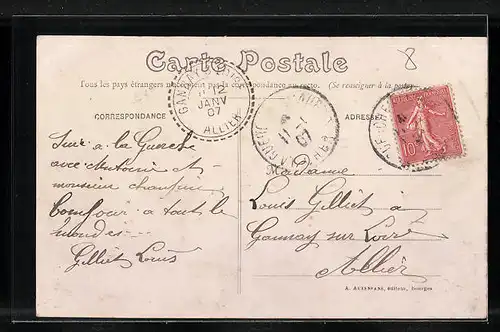 Carte Postale
8
Tous les pays étrangers n'acceptent pas la correspondance au recto. (Se renseigner à la poste)
CORRESPONDANCE
ADRESSE
12
JANV
07
ALLIER
11-1
07
LA GUERCHE
CHER
10
Suis a la Guerche
avec Antoine et
monsieur
bonjour a tout le
monde
Gilliet Louis
Madame
Louis Gilliet à
Gannay sur Loire
Allier
A. AUXENFANS, éditeur, Bourges